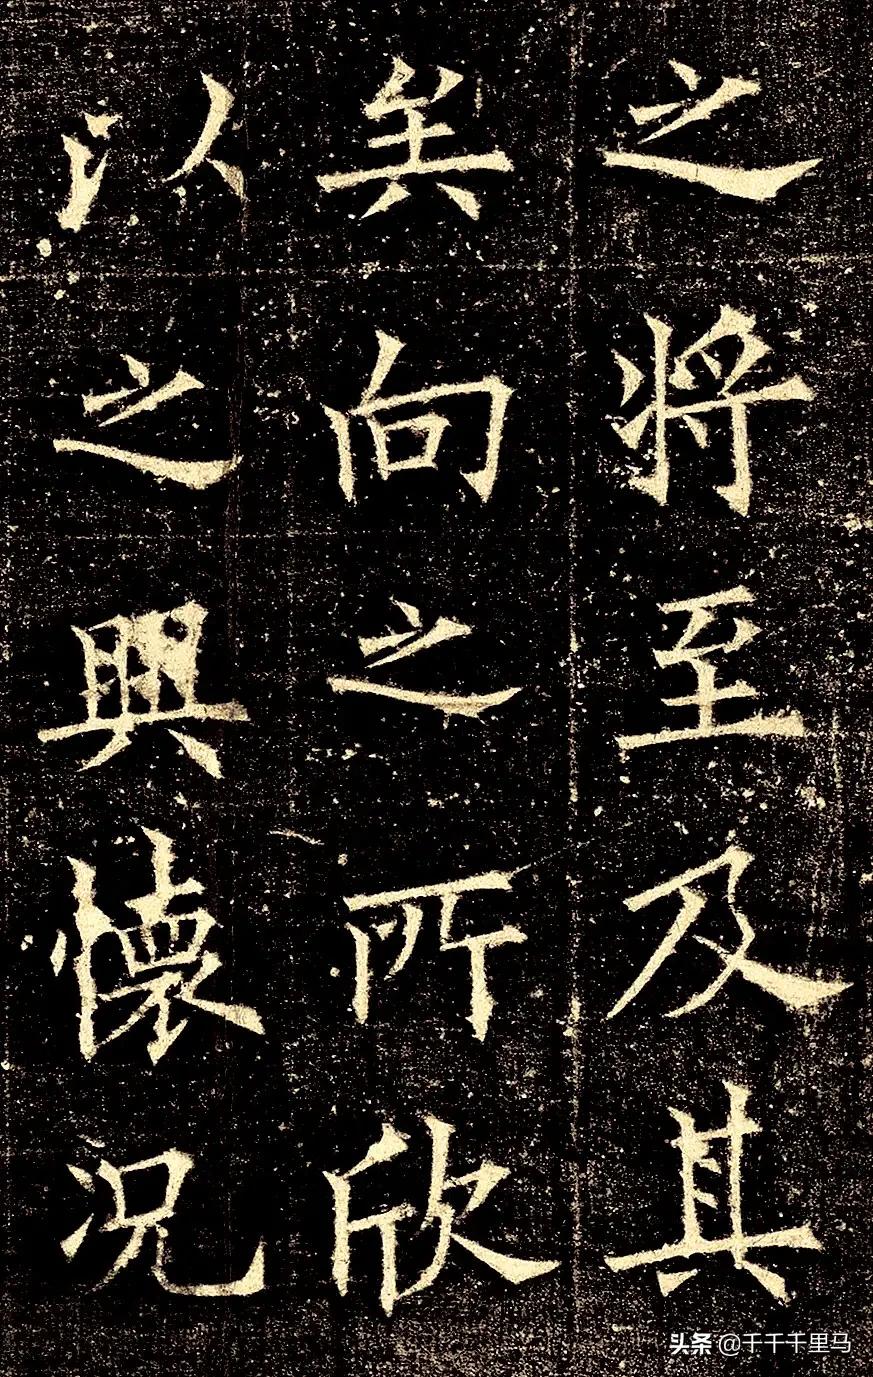 之将至及其
矣向之所欣
以之興懷况
头条 @千千千里马